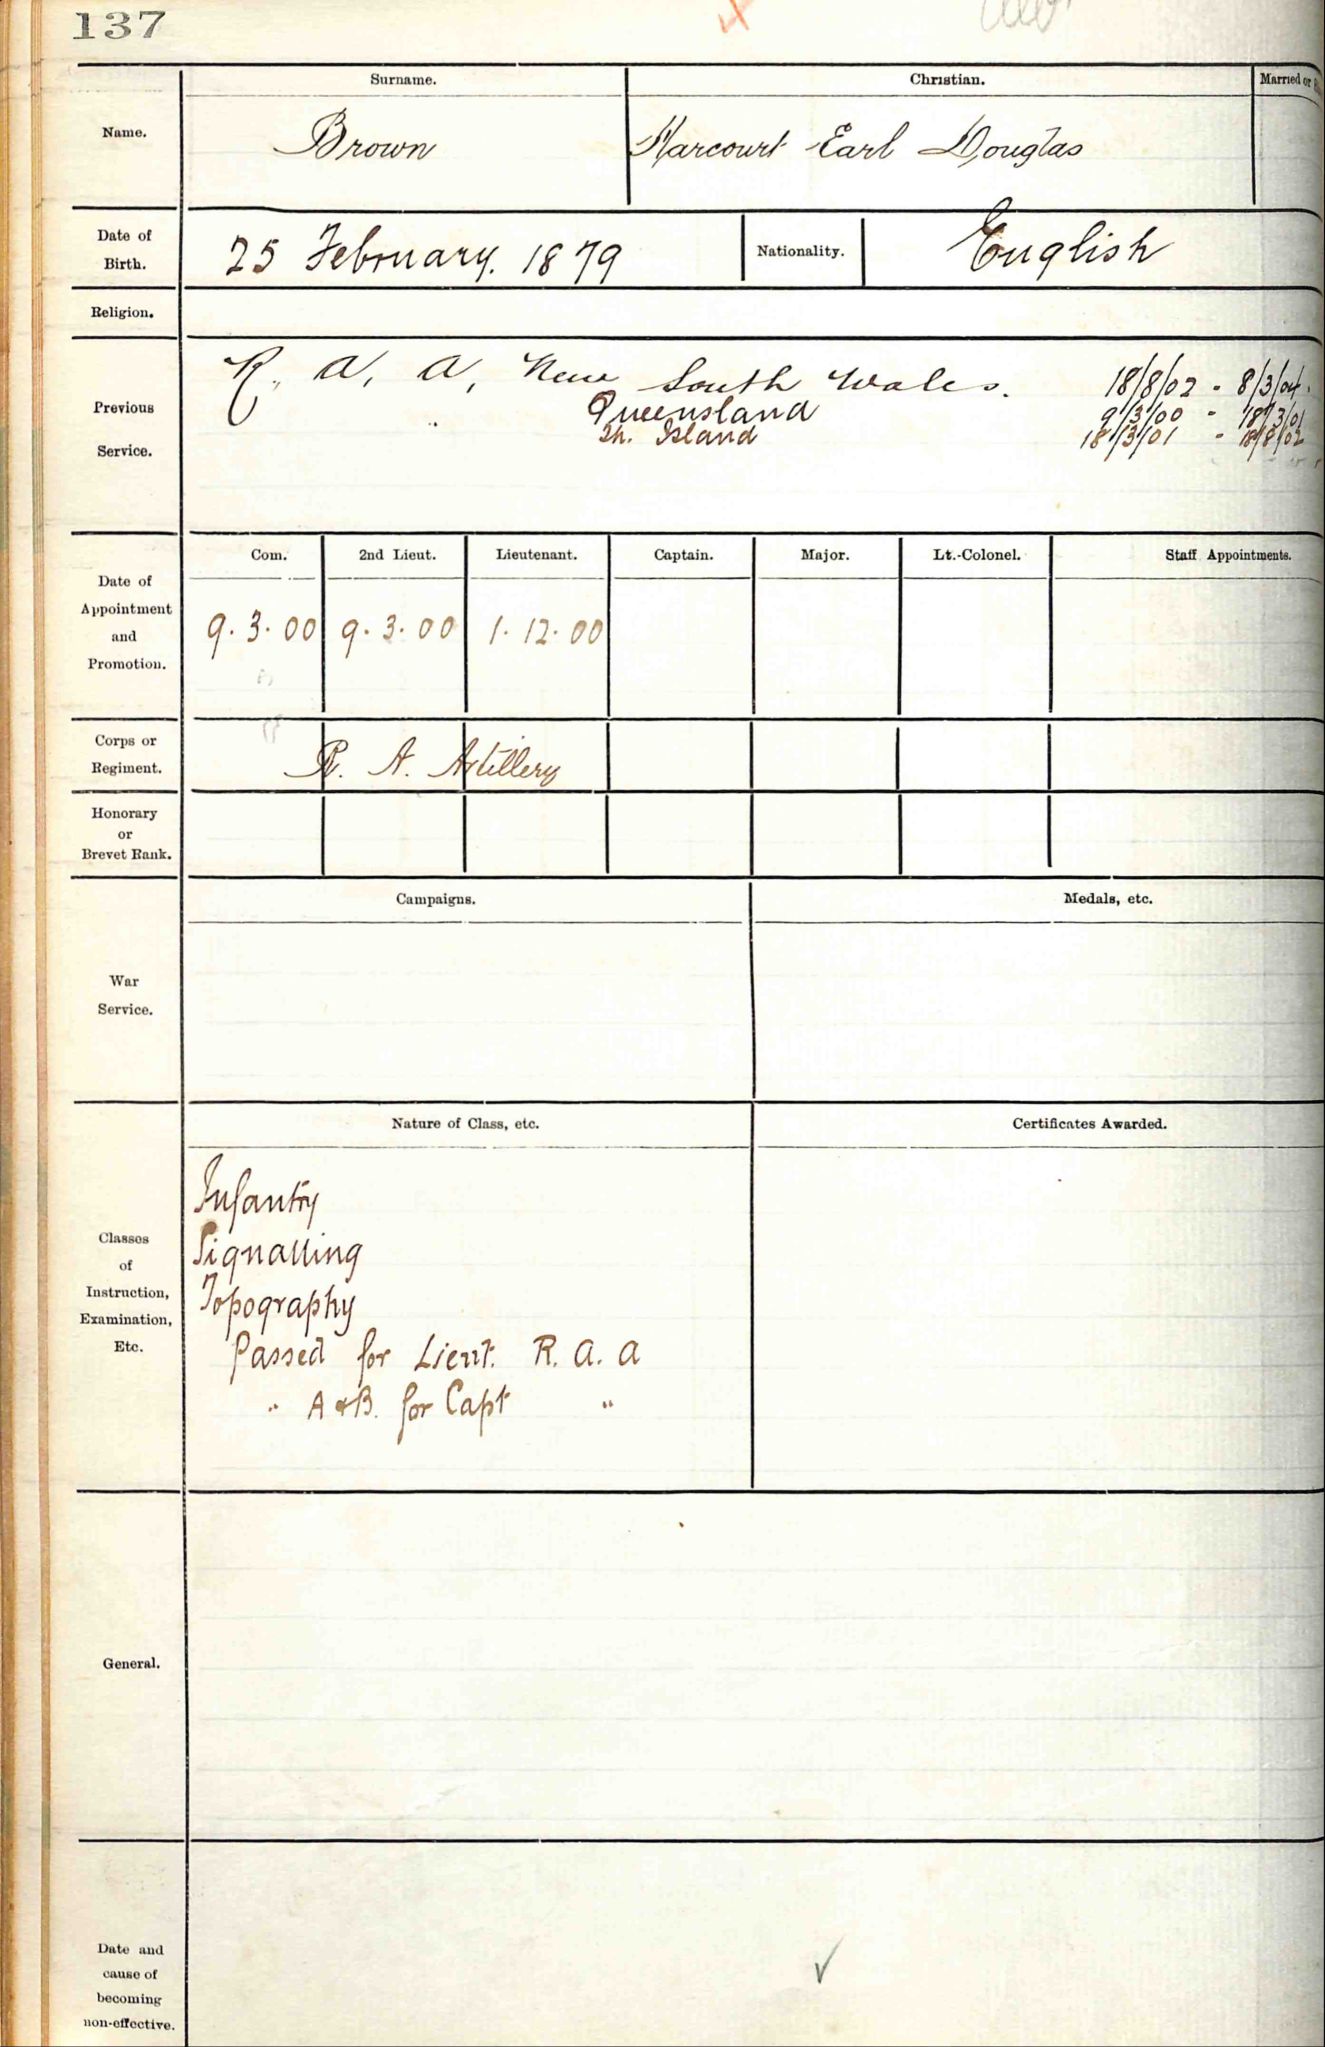 137
Surname. Christian. Married or
Name. Brown Harcourt Earl Douglas
Date of Birth. 25 February. 1879 Nationality. English
Religion.
Previous Service.
R. A. A. New South Wales. 18/8/02 - 8/3/04.
" Queensland 9/3/00 - 18/3/01
Th. Island 18/3/01 - 18/8/02
Com. 2nd Lieut. Lieutenant. Captain. Major. Lt.-Colonel. Staff Appointments.
Date of
Appointment
and
Promotion.
9.3.00 9.3.00 1.12.00
Corps or
Regiment.
R. A. Artillery
Honorary
or
Brevet Rank.
Campaigns. Medals, etc.
War
Service.
Nature of Class, etc. Certificates Awarded.
Classes
of
Instruction,
Examination,
Etc.
Infantry
Signalling
Topography
Passed for Lieut. R. A. A
" A & B. for Capt "
General.
Date and
cause of
becoming
non-effective.